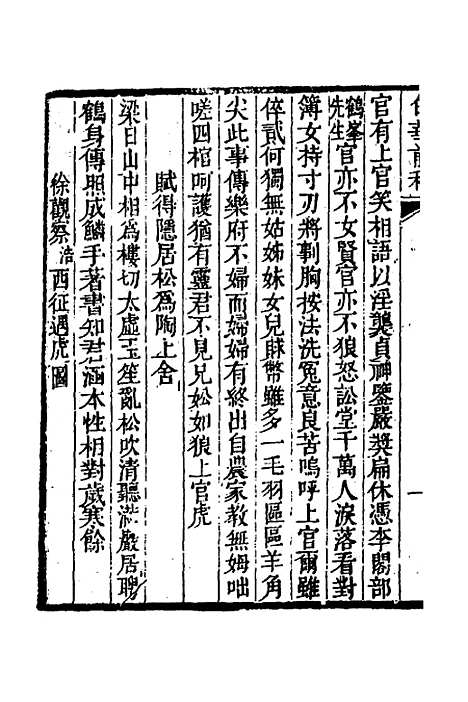 官有上官笑相語以淫襲貞神鑒嚴奬扁休憑李閣部
鶴峯先生官亦不女賢官亦不狼怒訟堂千萬人淚落看對
簿女持寸刃將剚胸按法洗冤意良苦嗚呼上官爾雖
倅貳何獨無姑姊妹女兒賕幣雖多一毛羽區區羊角
尖此事傳樂府不婦而婦婦有終出自農家教無姆咄
嗟四棺呵護猶有靈君不見兄妐如狼上官虎
賦得隱居松爲陶上舍
梁日山中相爲樓切太虛玉笙亂松吹清聽滿嚴居聘
鶴身傳照成鱗手著書知君涵本性相對歲寒餘
徐觀察浩西征遇虎圖